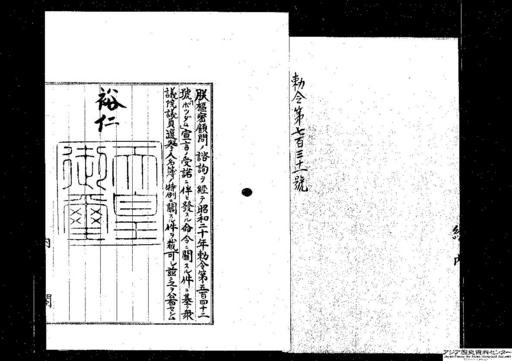 勅令第七百三十一號
朕樞密顧問ノ諮詢ヲ經テ昭和二十年勅令第五百四十二
號ポツダム宣言ノ受諾ニ伴ヒ發スル命令ニ關スル件ニ基ク衆
議院議員選擧人名簿ノ特例ニ關スル件ヲ裁可シ茲ニ之ヲ公布セシム
裕仁
天皇
御璽
内閣
アジア歴史資料センター